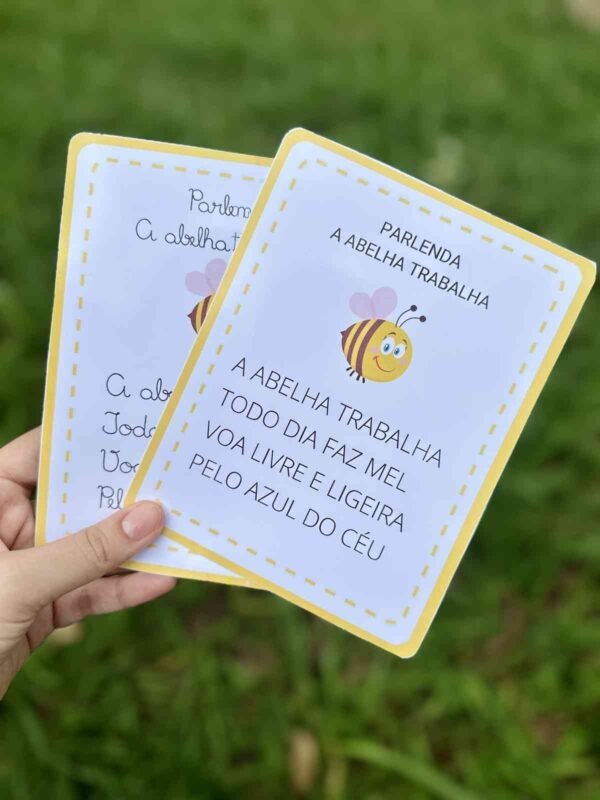 Parlen
A abelha t
A ab
Toda
Voa
Pel
PARLENDA
A ABELHA TRABALHA
A ABELHA TRABALHA
TODO DIA FAZ MEL
VOA LIVRE E LIGEIRA
PELO AZUL DO CÉU